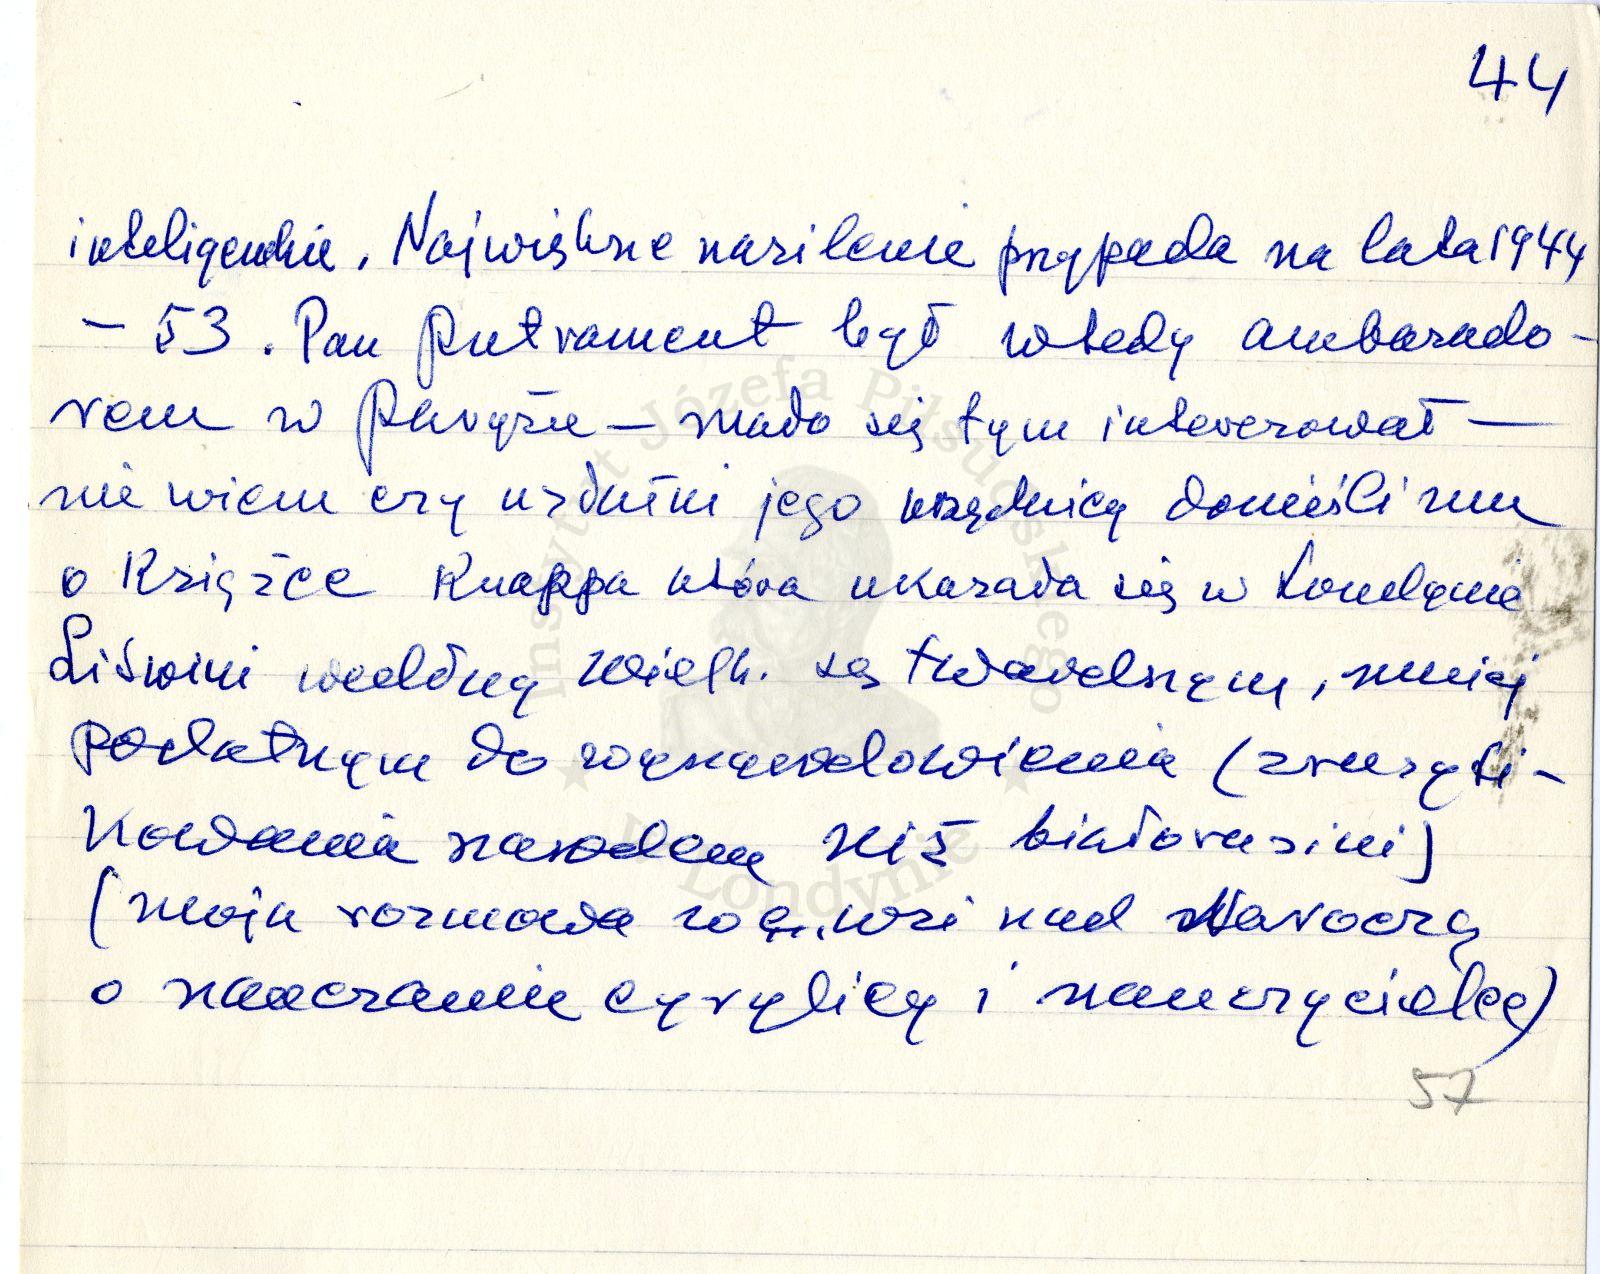 44
inteligencie. Największe nasilenie przypada na lata 1944
– 53. Pan Putrament był wtedy ambasado-
rem w Paryżu — mało się tym interesował —
nie wiem czy usłużni jego urzędnicy donieśli mu
o Książce Knappa która ukazała się w Londynie
Litwini według Wielh. są twardszym, mniej
podatnym do wynarodowienia (zrusyfi-
kowania narodem niż białorusini)
(moja rozmowa we wsi nad Naroczą
o nauczanie cyrylicy i nauczycielce)
57
Instytut Józefa Piłsudskiego
w Londynie